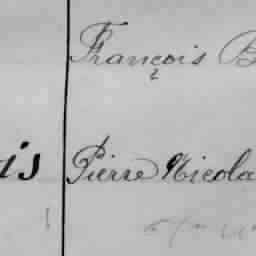 François B
is Pierre Nicola